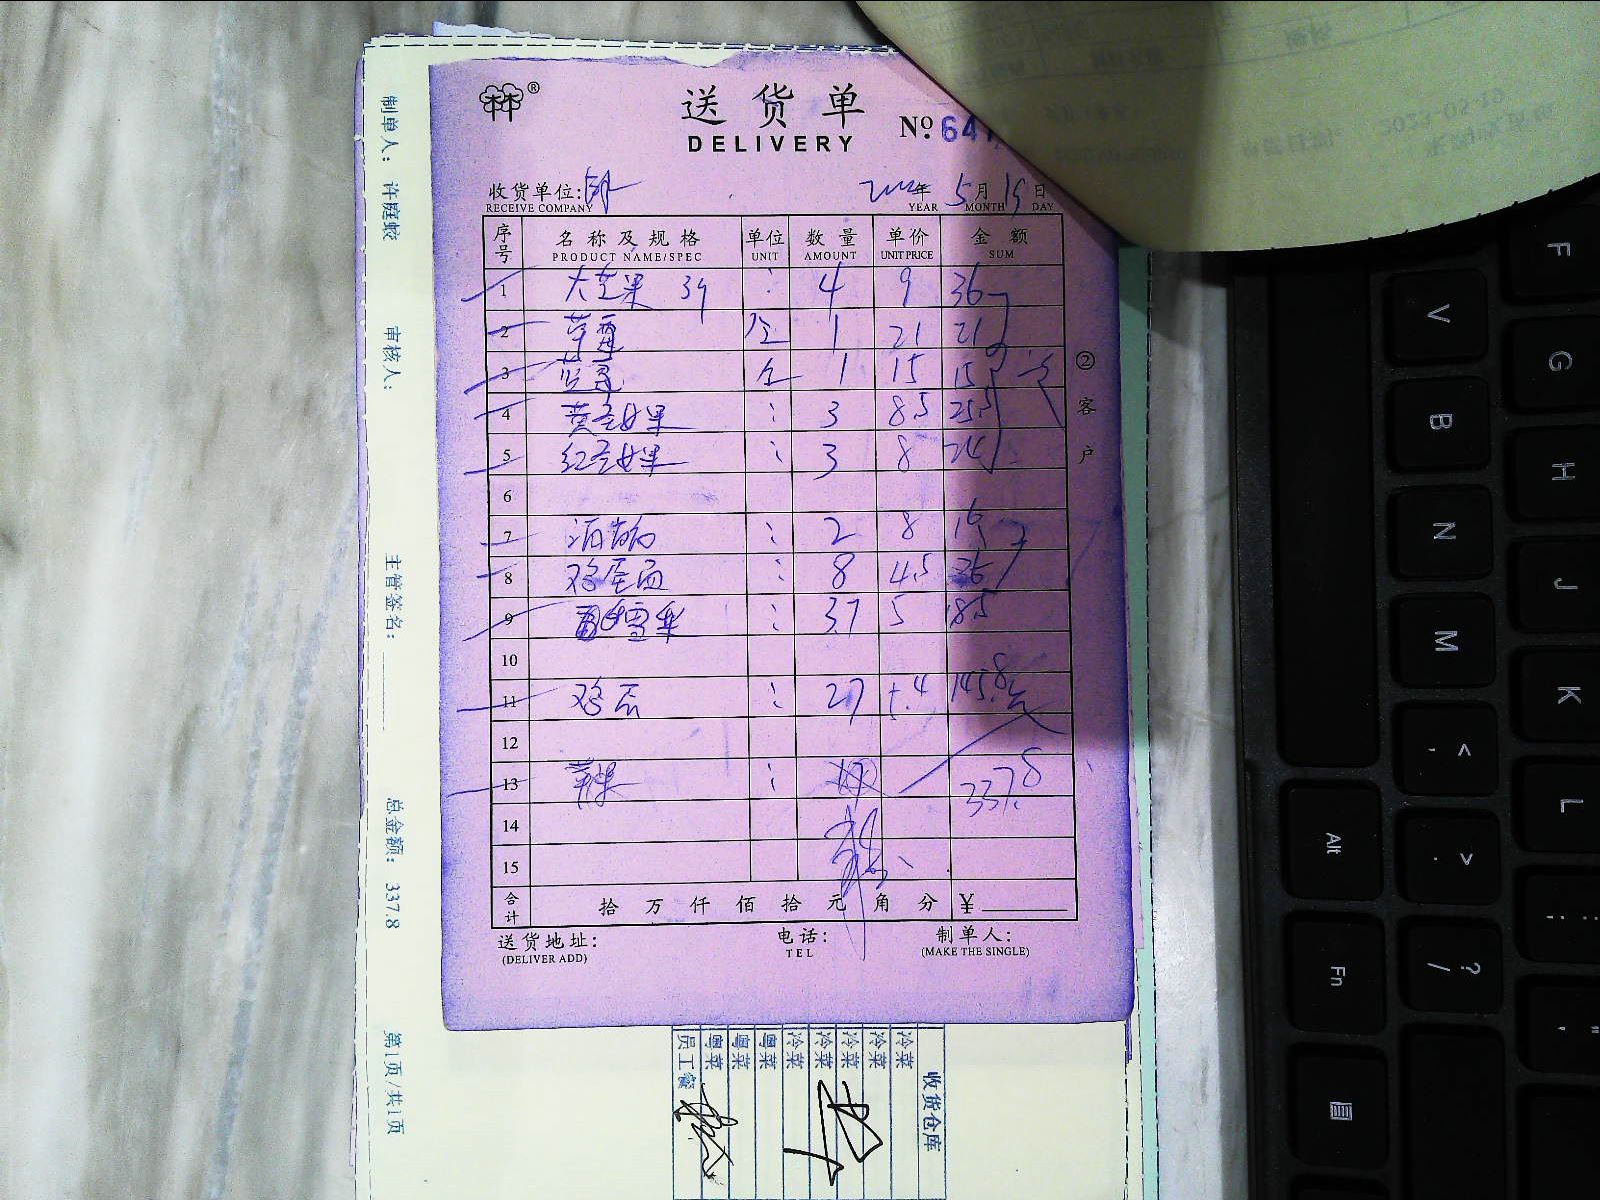 送货单
DELIVERY
No. 647
收货单位:
RECEIVE COMPANY
年 5月19日
YEAR MONTH DAY
序号 名称及规格 单位 数量 单价 金额
PRODUCT NAME/SPEC UNIT AMOUNT UNIT PRICE SUM
1 大芒果 : 4 9 36
2 草莓 1 21 21
3 1 15 15
4 黄圣女果 : 3 8.5 25.5
5 红圣女果 : 3 8 24
6
7 : 2 8 16
8 鸡蛋面 : 8 4.5 36
9 雪梨 : 3.7 5 18.5
10
11 鸡蛋 : 27 5.4 145.8
12
13 :
337.8
14
15
合计 拾 万 仟 佰 拾 元 角 分 ¥
送货地址: 电话: 制单人:
(DELIVER ADD) TEL (MAKE THE SINGLE)
② 客户
制单人: 许庭蛟
审核人:
主管签名:
总金额: 337.8
第1页/共1页
收货仓库
冷菜
冷菜
冷菜
冷菜
冷菜
粤菜
粤菜
粤菜
员工餐
F
V
G
B
H
N
J
M
K
< ,
L
Alt
> .
: ;
Fn
? /
" '